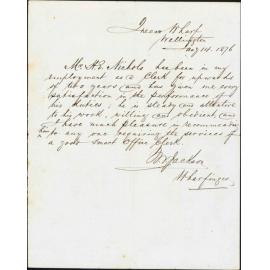 Queens Wharf
Wellington
Aug 14. 1876
Mr. H. E. Nichols has been in my
employment as a Clerk for upwards
of two years and has given me every
satisfaction in the performance of
his duties; he is steady and attentive
to his work, willing and obedient, and
I have much pleasure in recommending
him to any one requiring the services of
a good smart Office Clerk.
Jackson
Wharfinger